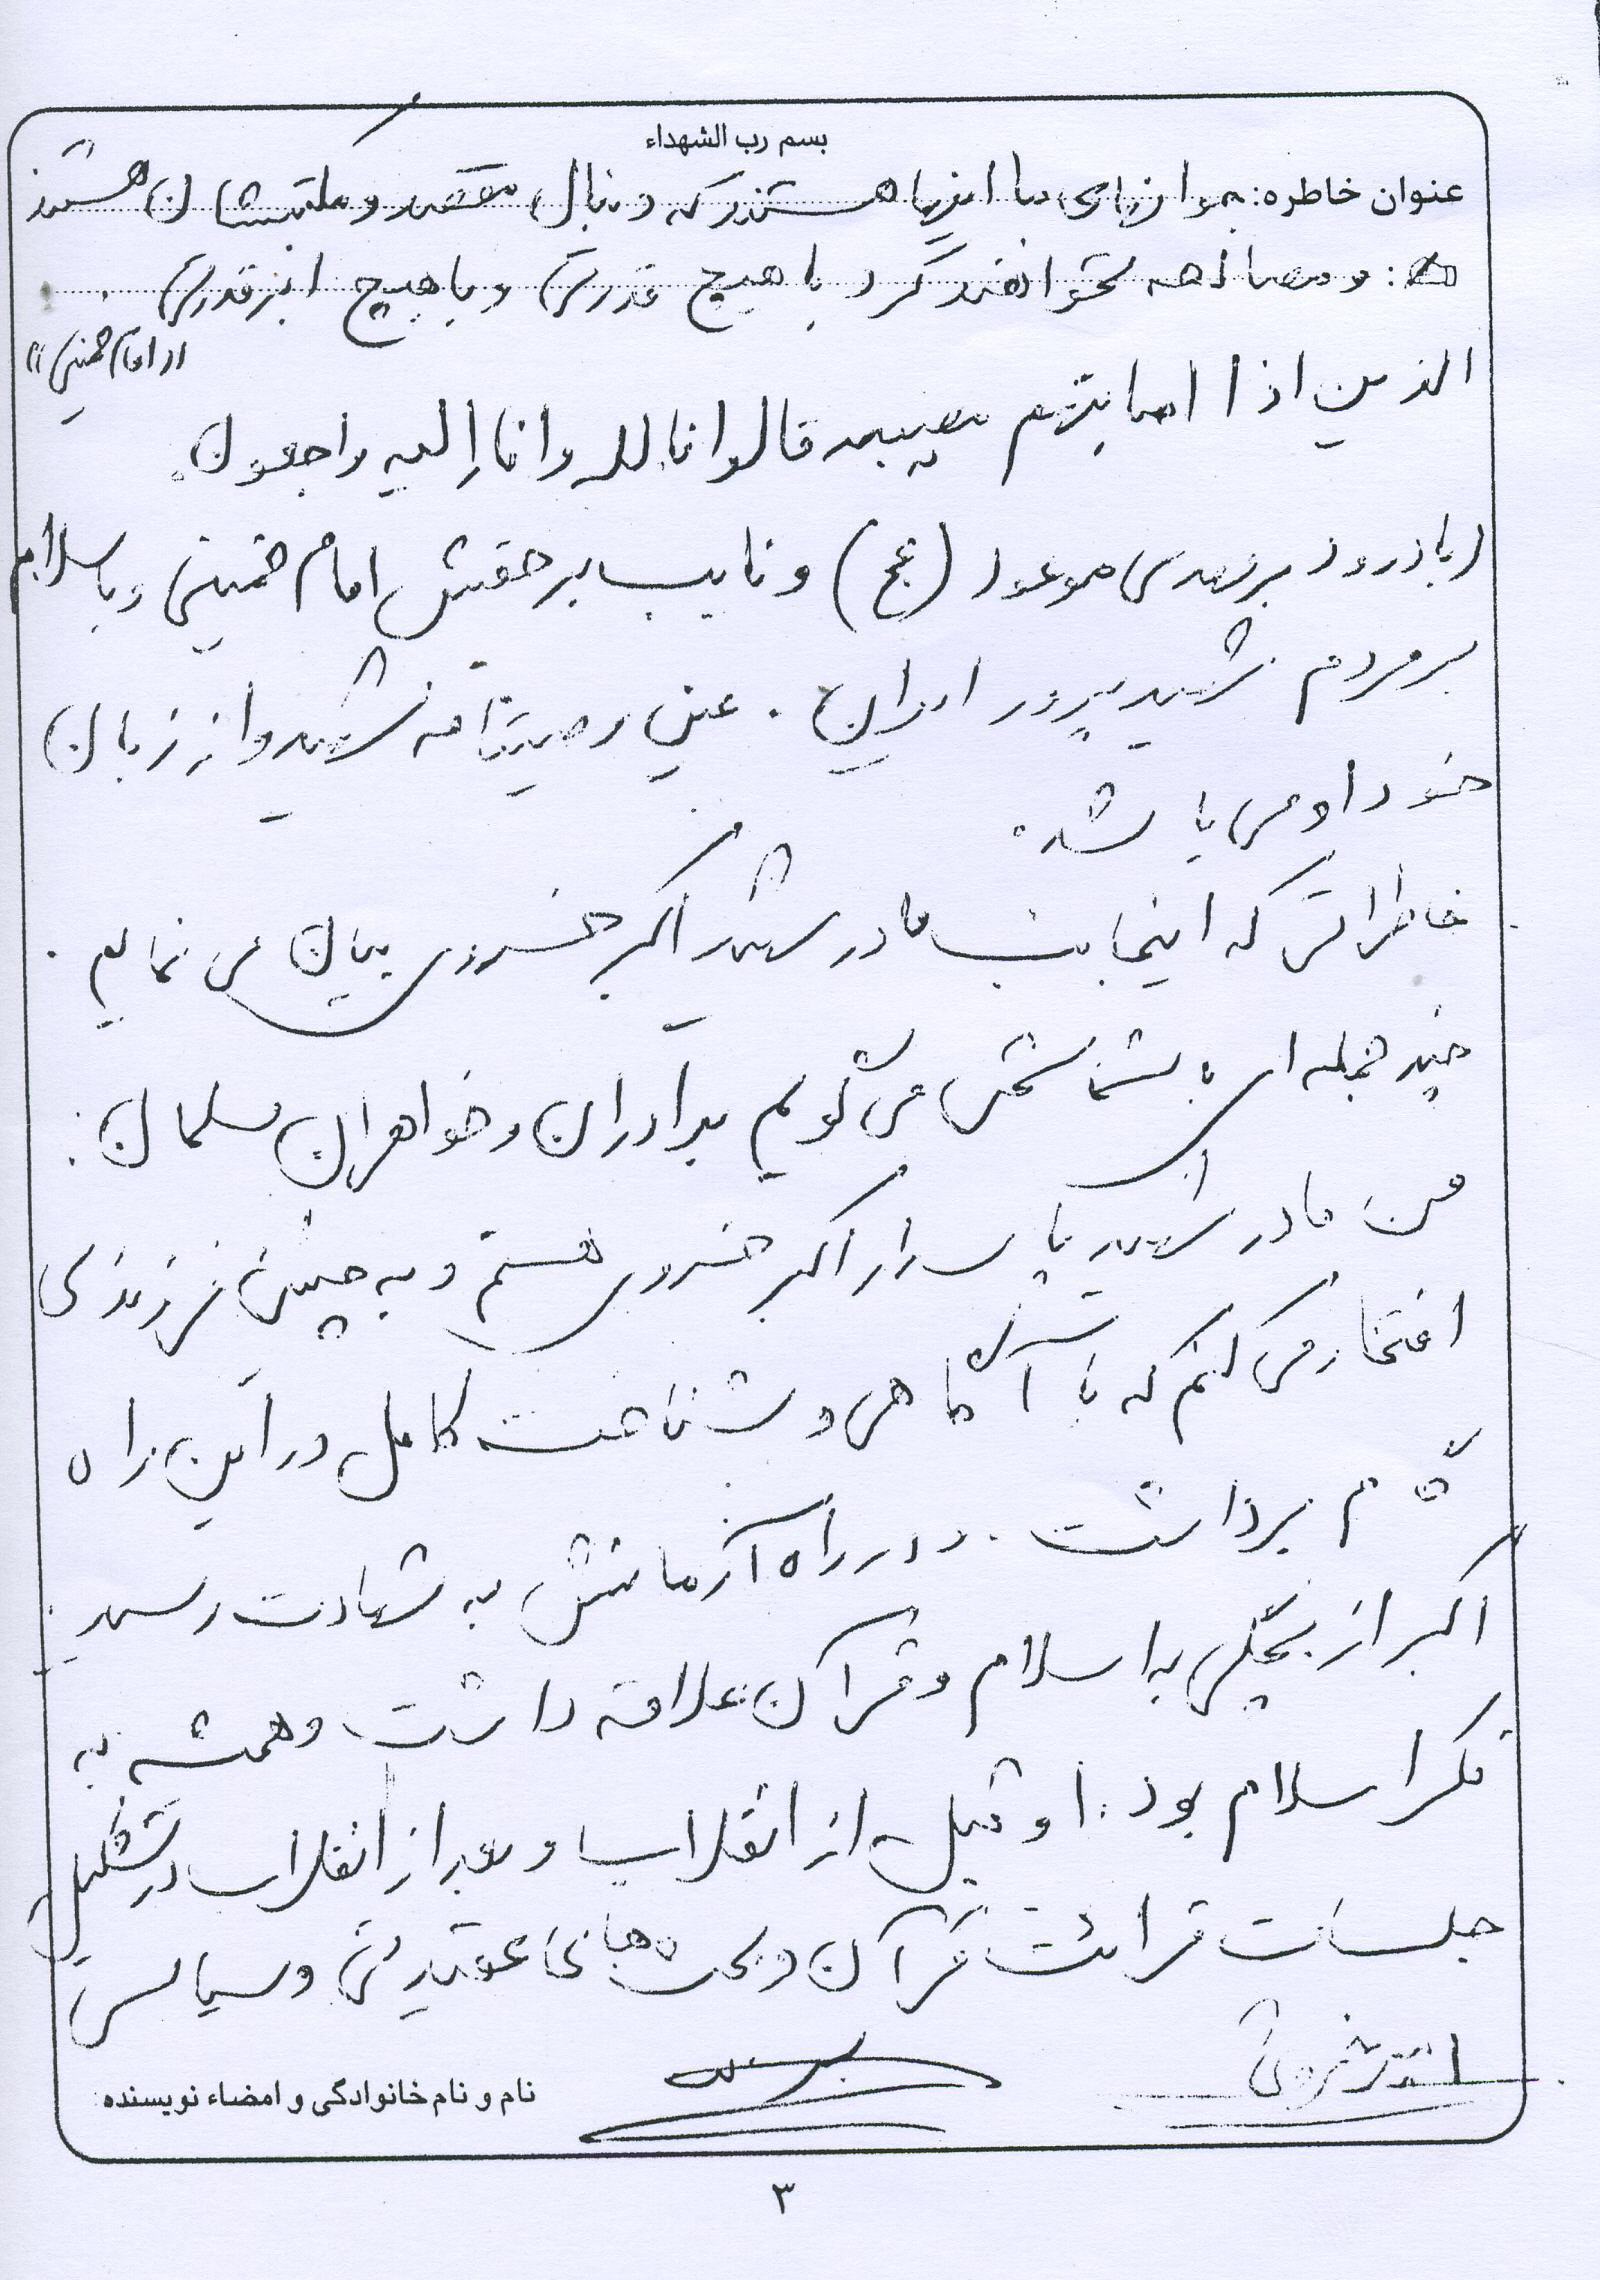 بسم رب الشهداء
عنوان خاطره: جوانهای ما اینها هستند که دنبال مقصد و مکتبشان هستند
: و مصالحه نخواهند کرد با هیچ قدرتی و با هیچ ابرقدرتی .
((امام خمینی))
الذین اذا اصابتهم مصیبه قالوا انا لله وانا إلیه راجعون.
(با درود بر مهدی موعود (عج) و نایب بر حقش امام خمینی و با سلام
بر مردم شهید پرور ایران . عین وصیتنامه شهید و از زبان
خود او می باشد.
خاطراتی که اینجانب مادر شهید اکبر خسروی بیان می نمایم .
چند جمله ای با شما سخن می گویم برادران و خواهران مسلمان:
من مادر شهید پاسدار اکبر خسروی هستم و به چنین فرزندی
افتخار می کنم که با آگاهی و شناخت کامل در این راه
قدم برداشت . و در راه آرمانش به شهادت رسید .
اکبر از بچگی به اسلام و قرآن علاقه داشت و همیشه به
فکر اسلام بود . او قبل از انقلاب و بعد از انقلاب در تشکیل
جلسات قرائت قرآن و بحث های عقیدتی و سیاسی
نام و نام خانوادگی و امضاء نویسنده:
۳